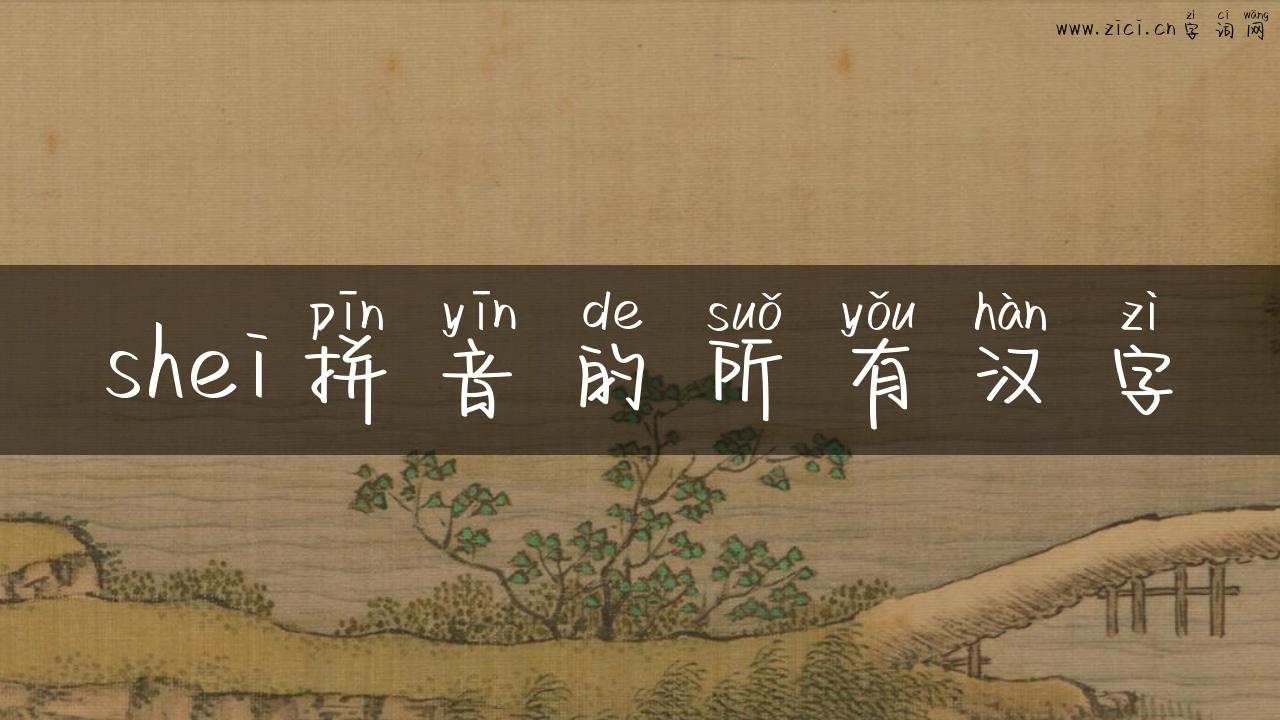 zì cí wǎng
www.zici.cn字词网
pīn yīn de suǒ yǒu hàn zì
shei拼音的所有汉字